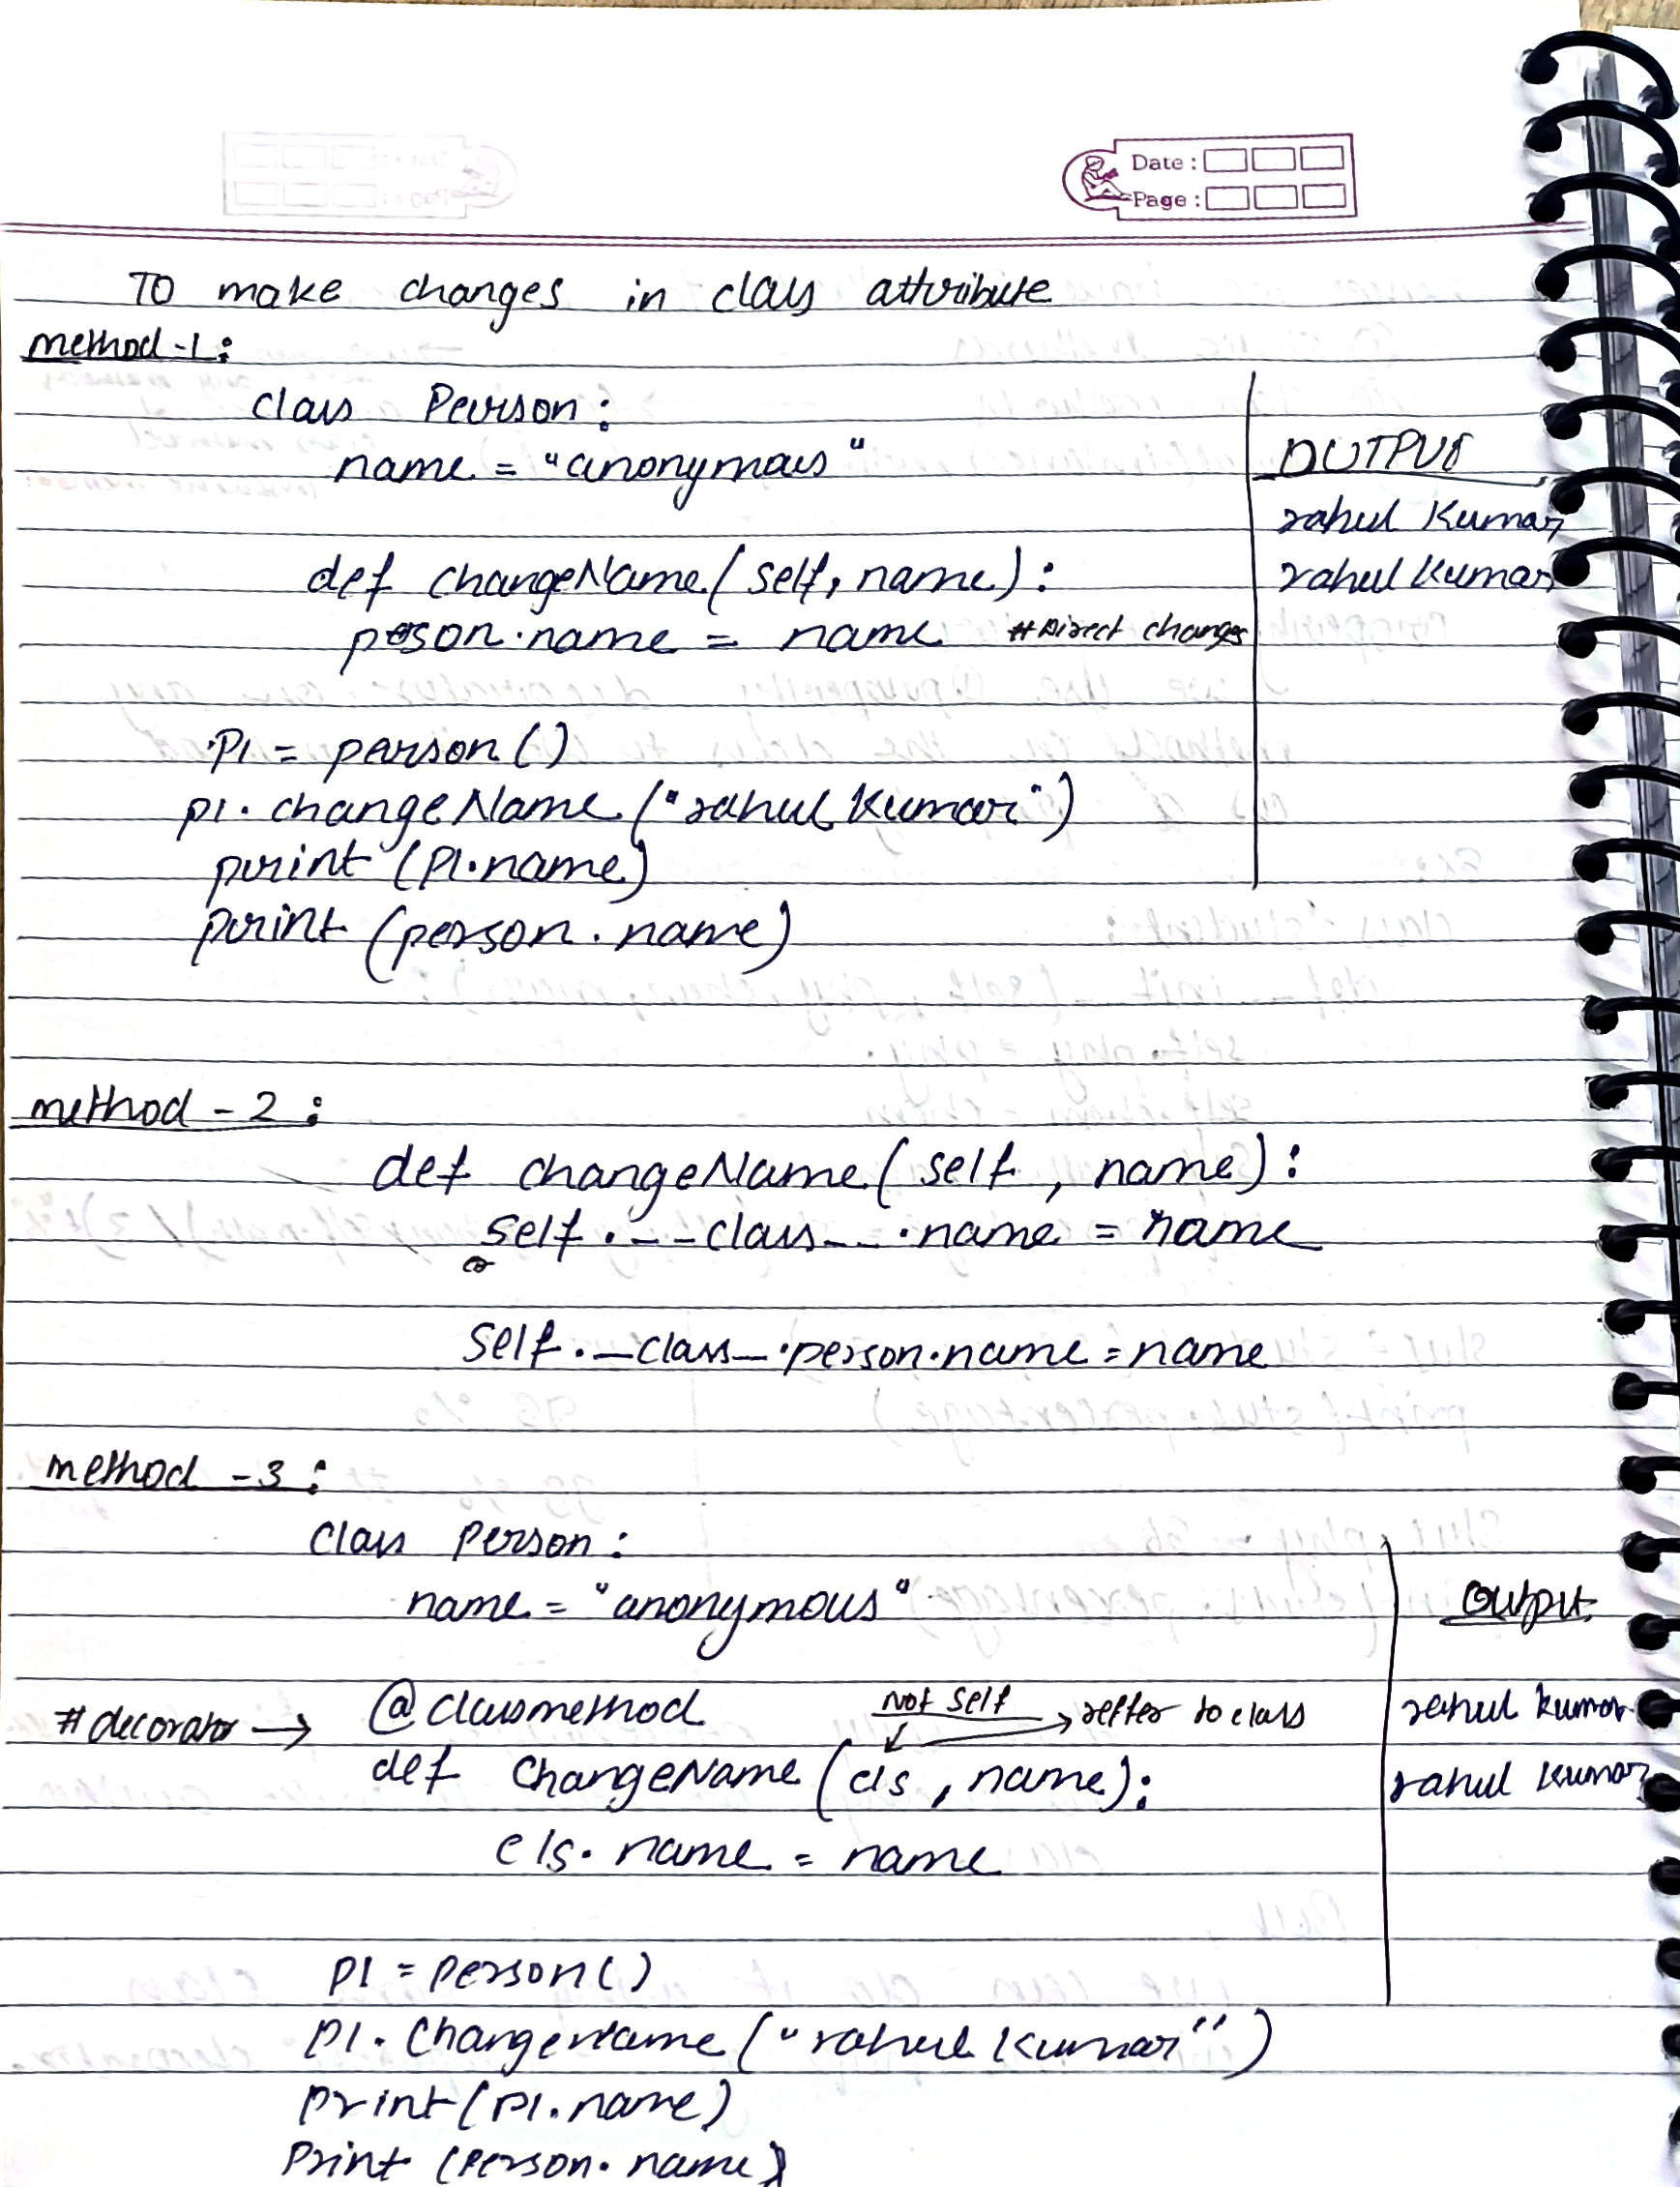 Date :
Page :
To make changes in class attribute
method-1:
class Person:
name = "anonymous"
def changeName(self, name):
person.name = name #Direct changes
P1 = person()
p1.changeName("rahul Kumar")
print (P1.name)
print (person.name)
OUTPUT
rahul Kumar
rahul Kumar
method - 2 :
def changeName(self , name):
self.__class__.name = name
or
Self._class_.person.name = name
method -3 :
Class Person :
name = "anonymous"
#decorator → @classmethod
Not Self → reffer to class
def ChangeName (cls , name):
cls.name = name
P1 = Person()
P1.ChangeName ("rahul Kumar")
print(P1.name)
Print (Person.name)
Output
rahul kumar
rahul kumar